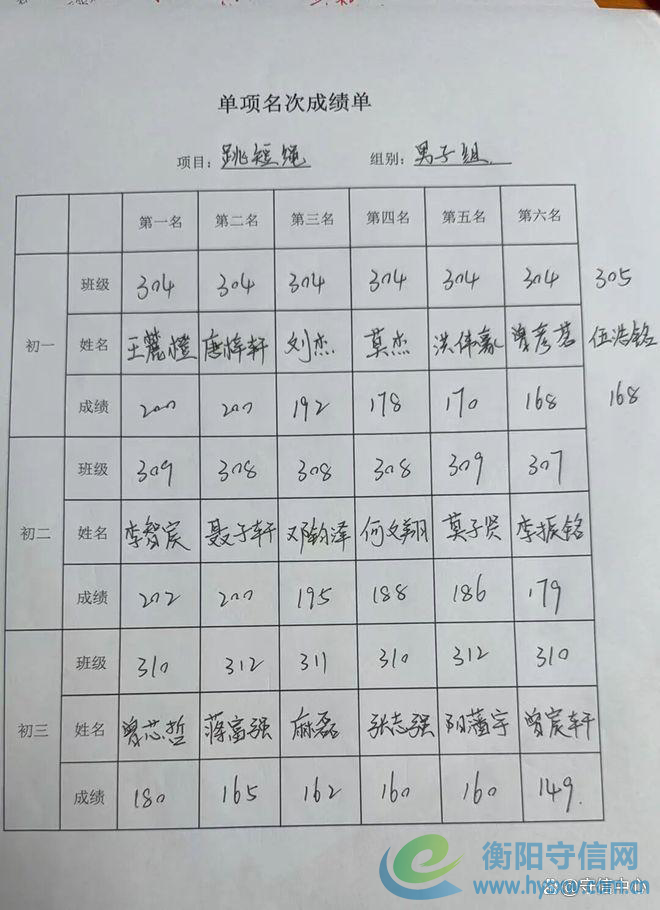 单项名次成绩单
项目：跳短绳 组别：男子组
第一名 第二名 第三名 第四名 第五名 第六名
初一
班级 304 304 304 304 304 304 305
姓名 王麓橙 唐梓轩 刘杰 莫杰 洪伟豪 曾彦茗 伍浩铭
成绩 200 200 192 178 170 168 168
初二
班级 309 308 308 308 309 307
姓名 李智宸 聂子轩 邓钧泽 何文翔 莫子贤 李振铭
成绩 202 200 195 188 186 179
初三
班级 310 312 311 310 312 310
姓名 曾芯哲 蒋富强 麻磊 张志强 阳藩宇 曾宸轩
成绩 180 165 162 160 160 149.
衡阳守信网
www.hysxw.com
@守信中心